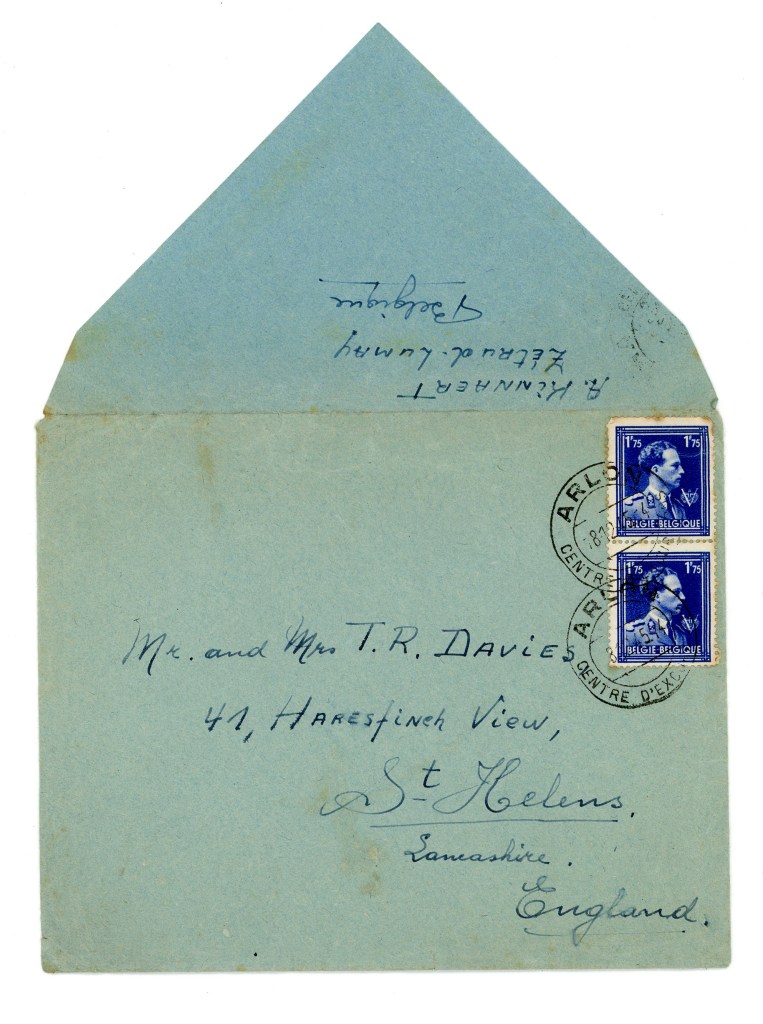 Belgique
Zétrud-Lumay
A. KINNAERT
1'75 1'75
BELGIE-BELGIQUE
1'75 1'75
BELGIE-BELGIQUE
ARLON
CENTRE
ARLON
CENTRE D'EXCU
Mr. and Mrs T. R. DAVIES
41, HARESfinch View,
St Helens.
Lancashire.
England.